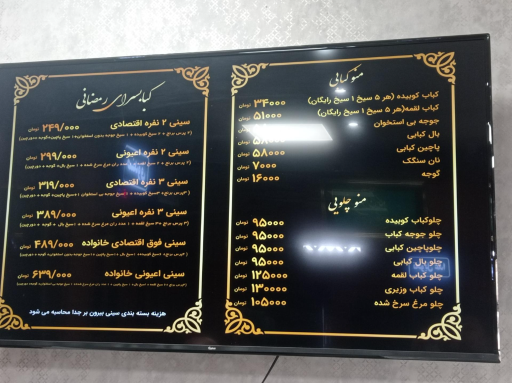 منو کبابی
کباب کوبیده (هر ۵ سیخ ۱ سیخ رایگان) ۳۴۰۰۰ تومان
کباب لقمه (هر ۵ سیخ ۱ سیخ رایگان) ۵۱۰۰۰ تومان
جوجه بی استخوان
بال کبابی
پاچین کبابی ۵۸۰۰۰ تومان
نان سنگک ۷۰۰۰ تومان
گوجه ۱۶۰۰۰ تومان
منو چلویی
چلوکباب کوبیده ۹۵۰۰۰ تومان
چلو جوجه کباب ۹۵۰۰۰ تومان
چلوپاچین کبابی ۹۵۰۰۰ تومان
چلو بال کبابی ۹۵۰۰۰ تومان
چلو کباب لقمه ۱۲۵۰۰۰ تومان
چلو کباب وزیری ۱۳۰۰۰۰ تومان
چلو مرغ سرخ شده ۱۰۵۰۰۰ تومان
کبابسرای رمضانی
سینی ۲ نفره اقتصادی ۲۴۹/۰۰۰ تومان
سینی ۲ نفره اعیونی ۲۹۹/۰۰۰ تومان
سینی ۳ نفره اقتصادی ۳۱۹/۰۰۰ تومان
سینی ۳ نفره اعیونی ۳۸۹/۰۰۰ تومان
سینی فوق اقتصادی خانواده ۴۸۹/۰۰۰ تومان
سینی اعیونی خانواده ۶۳۹/۰۰۰ تومان
هزینه بسته بندی سینی بیرون بر جدا محاسبه می شود